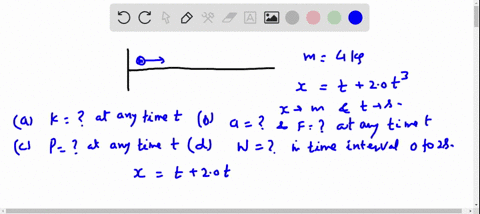 m = 4 kg
x = t + 2.0 t³
x → m & t → s.
(a) K = ? at any time t (b) a = ? & F = ? at any time t
(c) P = ? at any time t (d) W = ? in time interval 0 to 2s.
x = t + 2.0 t